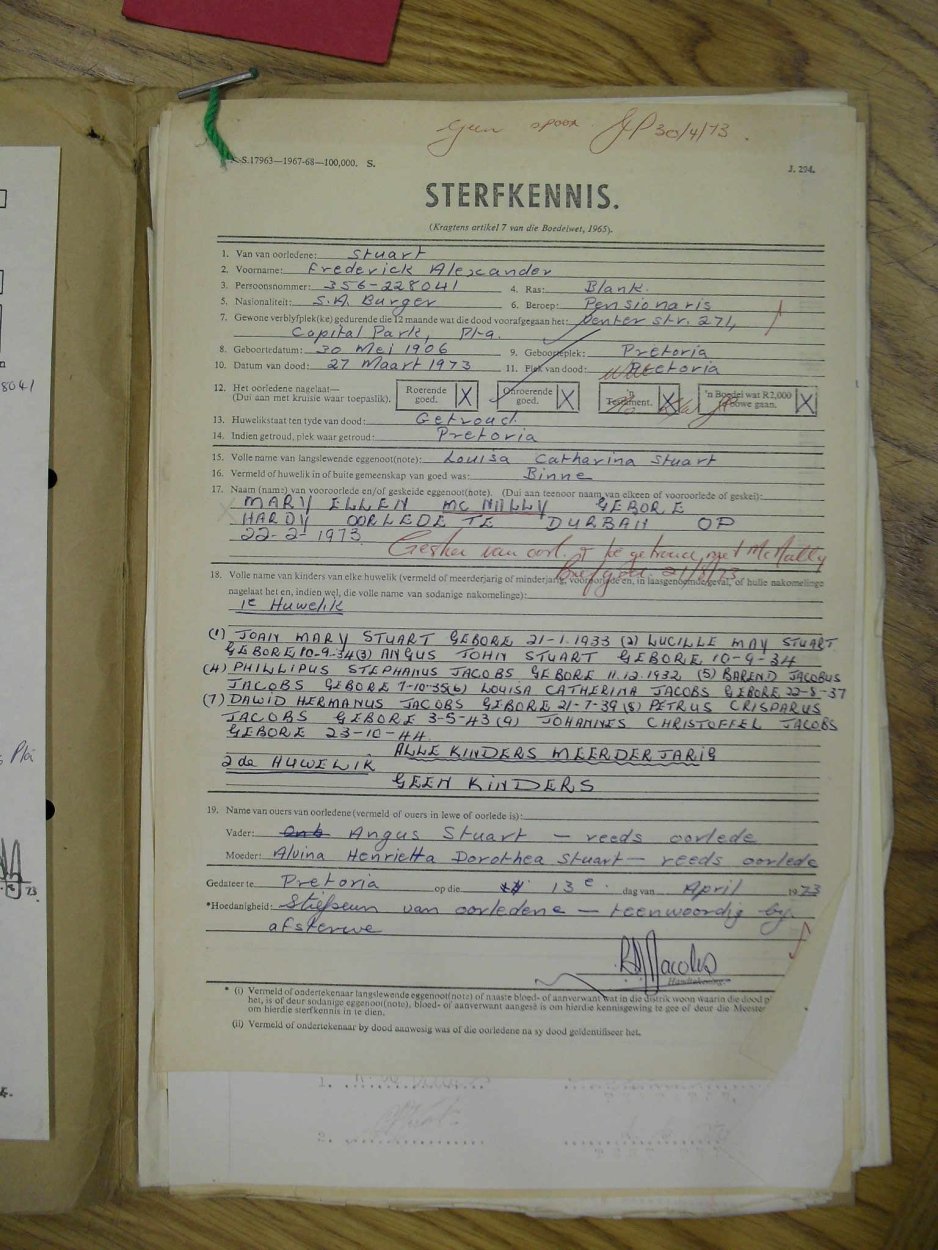 Geen spoor. JP 30/4/73.
G.P.-S.17963—1967-68—100,000. S.
J. 294.
STERFKENNIS.
(Kragtens artikel 7 van die Boedelwet, 1965).
1. Van van oorledene: Stuart
2. Voorname: Frederick Alexander
3. Persoonsnommer: 356-228041 4. Ras: Blank.
5. Nasionaliteit: S.A. Burger 6. Beroep: Pensionaris
7. Gewone verblyfplek(ke) gedurende die 12 maande wat die dood voorafgegaan het: Venter str. 271,
Capital Park, Pta.
8. Geboortedatum: 30 Mei 1906 9. Geboorteplek: Pretoria
10. Datum van dood: 27 Maart 1973 11. Plek van dood: Pretoria
12. Het oorledene nagelaat—
(Dui aan met kruisie waar toepaslik).
Roerende goed. X
Onroerende goed. X
'n Testament. X
'n Boedel wat R2,000 te bowe gaan. X
13. Huwelikstaat ten tyde van dood: Getroud
14. Indien getroud, plek waar getroud: Pretoria
15. Volle name van langslewende eggenoot(note): Louisa Catharina Stuart
16. Vermeld of huwelik in of buite gemeenskap van goed was: Binne
17. Naam (name) van vooroorlede en/of geskeide eggenoot(note). (Dui aan teenoor naam van elkeen of vooroorlede of geskei):
MARY ELLEN MC NULLY GEBORE
HARDY OORLEDE TE DURBAN OP
22-2-1973
Geskei van oorl. & getroud met McNally
21/8/73
18. Volle name van kinders van elke huwelik (vermeld of meerderjarig of minderjarig, vooroorlede en, in laasgenoemde geval, of hulle nakomelinge
nagelaat het en, indien wel, die volle name van sodanige nakomelinge):
1e Huwelik
(1) JOAN MARY STUART GEBORE 21-1-1933 (2) LUCILLE MAY STUART
GEBORE 10-9-34 (3) ANGUS JOHN STUART GEBORE 10-9-34
(4) PHILLIPUS STEPHANUS JACOBS GEBORE 11.12.1932 (5) BAREND JACOBUS
JACOBS GEBORE 7-10-35 (6) LOUISA CATHERINA JACOBS GEBORE 22-8-37
(7) DAWID HERMANUS JACOBS GEBORE 21-7-39 (8) PETRUS CRISPARUS
JACOBS GEBORE 3-5-43 (9) JOHANNES CHRISTOFFEL JACOBS
GEBORE 23-10-44.
ALLE KINDERS MEERDERJARIG
2de HUWELIK
GEEN KINDERS
19. Name van ouers van oorledene (vermeld of ouers in lewe of oorlede is):
Vader: Angus Stuart — reeds oorlede
Moeder: Alvina Henrietta Dorothea Stuart — reeds oorlede
Gedateer te Pretoria op die 13e dag van April 1973
*Hoedanigheid: Stiefseun van oorledene — teenwoordig by
afsterwe
Jacobs
Handtekening.
* (i) Vermeld of ondertekenaar langslewende eggenoot(note) of naaste bloed- of aanverwant wat in die distrik woon waarin die dood
het, is of deur sodanige eggenoot(note), bloed- of aanverwant aangesê is om hierdie kennisgewing te gee of deur die Meester
om hierdie sterfkennis in te dien.
(ii) Vermeld of ondertekenaar by dood aanwesig was of die oorledene na sy dood geïdentifiseer het.